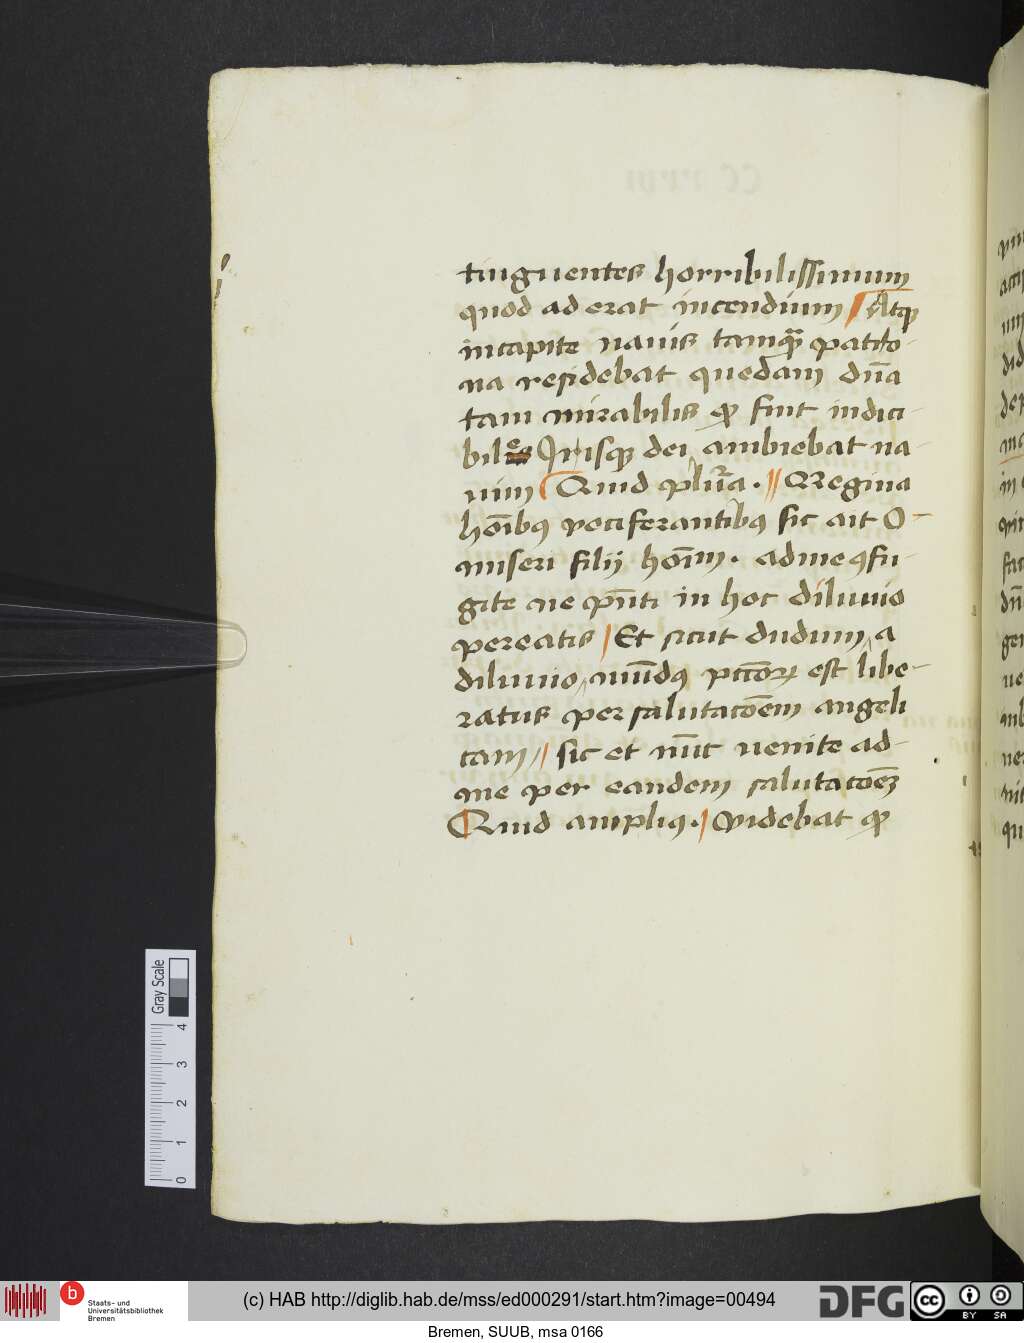 tinguentes horribilissimum
quod ad erat incendium Atqꝫ
in capite nauis tamqᷓ patro-
na residebat quedam dn̄a
tam mirabilis ꝙ sint indici-
biles Irisqꝫ dei ambiebat na
uim Quid plur̄a . Regina
hoı̄bꝰ vociferantibꝰ sic ait O-
miseri filij hoı̄m . ad me ꝯfu-
gite ne pn̄ti in hoc diluuio
pereatis Et sicut dudum a
diluuio mūdꝰ pctōꝝ est libe-
ratus per salutatōem angeli
cam sic et nūc uenite ad-
me per eandem salutatōeꝫ
Quid ampliꝰ . Videbat ꝙ
CC
Gray Scale
0 1 2 3 4
b Staats- und
Universitätsbibliothek
Bremen
(c) HAB http://diglib.hab.de/mss/ed000291/start.htm?image=00494
DFG
cc BY SA
Bremen, SUUB, msa 0166